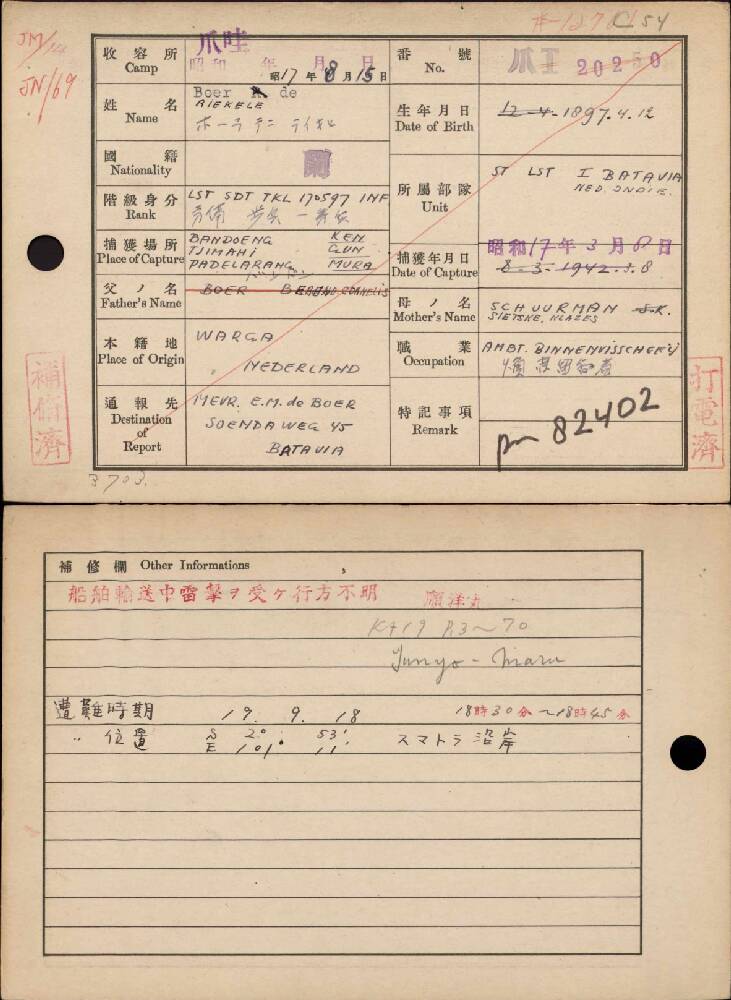 C 54
JM/
JN/69
收容所 Camp 爪哇
昭和 年 月 日
昭17年8月15日
番號 No. 爪Ⅱ 20250
姓名 Name Boer de
RIEKELE
生年月日 Date of Birth 12-4-1897.4.12
國籍 Nationality 蘭
所屬部隊 Unit ST LST I BATAVIA
NED. INDIE.
階級身分 Rank LST SDT TKL 170597 INF
捕獲場所 Place of Capture BANDOENG
TJIMAHI
PADELARANG
KEN
GUN
MURA
バンドン
捕獲年月日 Date of Capture 昭和17年3月8日
8-3-1942.3.8
父ノ名 Father's Name BOER
母ノ名 Mother's Name SCHUURMAN S.K.
SIETSKE, KLAZES
本籍地 Place of Origin WARGA
NEDERLAND
職業 Occupation AMBT. BINNENVISSCHERIJ
通報先 Destination of Report MEVR. E.M. de BOER
SOENDAWEG 45
BATAVIA
特記事項 Remark
pm 82402
補修濟
打電濟
3703.
補修欄 Other Informations
船舶輸送中雷擊ヲ受ケ行方不明 順洋丸
K419 P.3~70
Junyo-Maru
遭難時期 19. 9. 18 18時30分~18時45分
〃 位置 S 2° 53'
E 101° 11' スマトラ沿岸